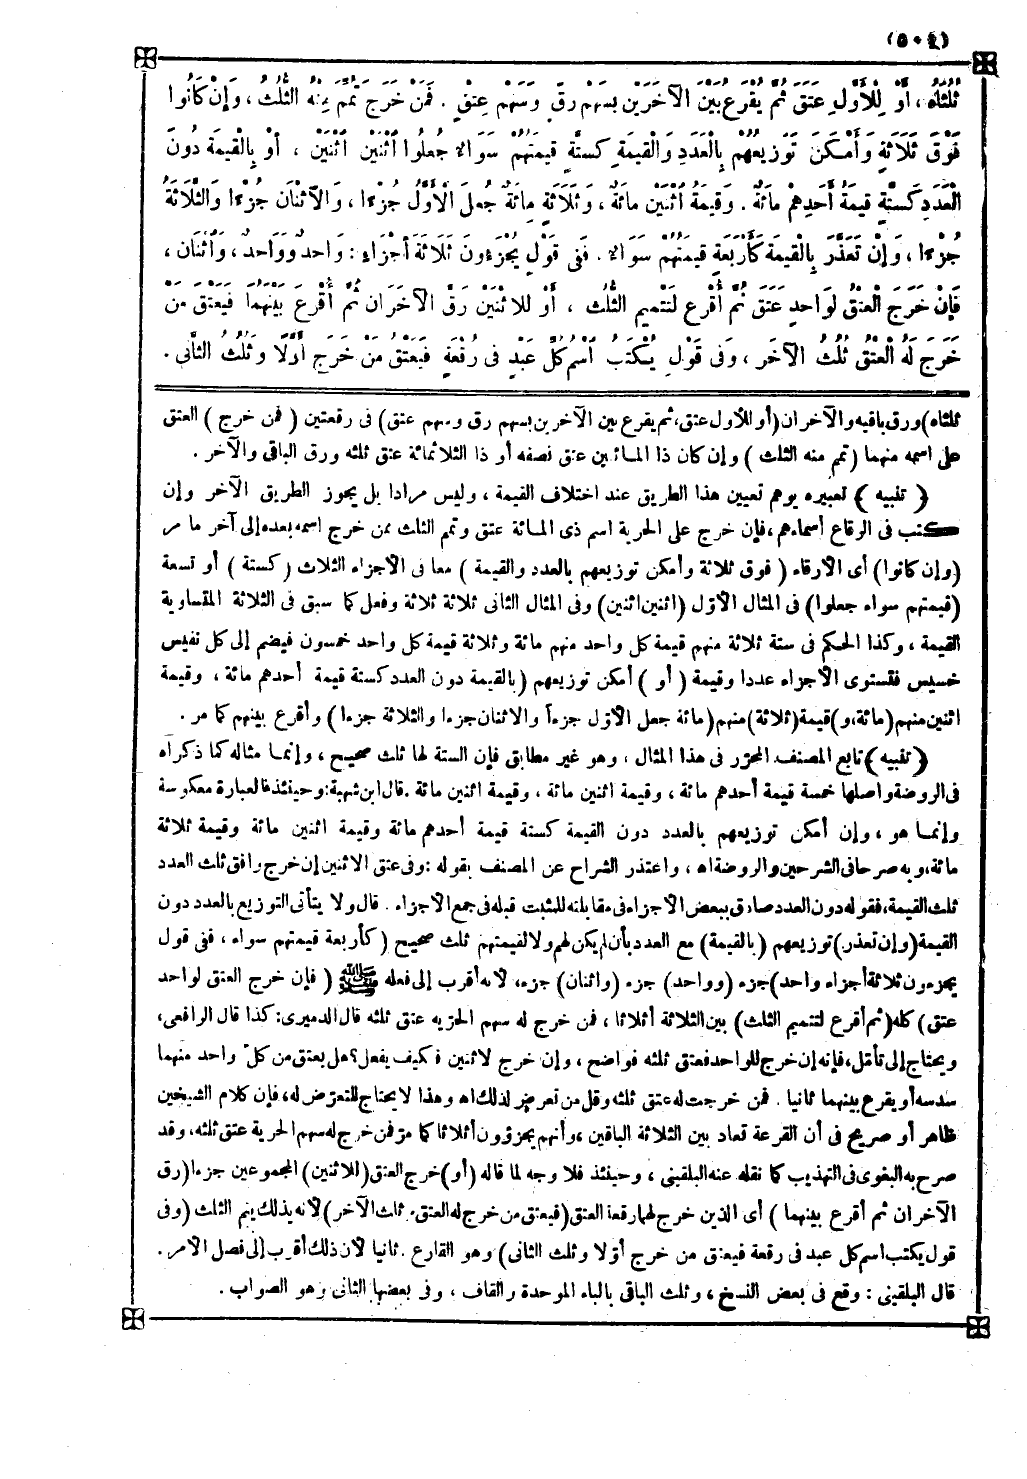 (٥٠٤)
ثُلُثَاهُ ، أَوْ لِلْأَوَّلِ عَتَقَ ثُمَّ يُقْرَعُ بَيْنَ الْآخَرَيْنِ بِسَهْمِ رِقٍّ وَسَهْمِ عِتْقٍ . فَمَنْ خَرَجَ تُمِّمَ مِنْهُ الثُّلُثُ ، وَإِنْ كَانُوا
فَوْقَ ثَلَاثَةٍ وَأَمْكَنَ تَوْزِيعُهُمْ بِالْعَدَدِ وَالْقِيمَةِ كَسِتَّةٍ قِيمَتُهُمْ سَوَاءٌ جُعِلُوا اثْنَيْنِ اثْنَيْنِ ، أَوْ بِالْقِيمَةِ دُونَ
الْعَدَدِ كَسِتَّةٍ قِيمَةُ أَحَدِهِمْ مِائَةٌ . وَقِيمَةُ اثْنَيْنِ مِائَةٌ ، وَثَلَاثَةٍ مِائَةٌ جُعِلَ الْأَوَّلُ جُزْءًا ، وَالِاثْنَانِ جُزْءًا وَالثَّلَاثَةُ
جُزْءًا ، وَإِنْ تَعَذَّرَ بِالْقِيمَةِ كَأَرْبَعَةٍ قِيمَتُهُمْ سَوَاءٌ . فَفِي قَوْلٍ يُجَزَّءُونَ ثَلَاثَةَ أَجْزَاءٍ : وَاحِدٌ وَوَاحِدٌ ، وَاثْنَانِ ،
فَإِنْ خَرَجَ الْعِتْقُ لِوَاحِدٍ عَتَقَ ثُمَّ أُقْرِعَ لِتَتْمِيمِ الثُّلُثِ ، أَوْ لِلِاثْنَيْنِ رَقَّ الْآخَرَانِ ثُمَّ أُقْرِعَ بَيْنَهُمَا فَيَعْتِقُ مَنْ
خَرَجَ لَهُ الْعِتْقُ ثُلُثُ الْآخَرِ ، وَفِي قَوْلٍ يُكْتَبُ اسْمُ كُلِّ عَبْدٍ فِي رُقْعَةٍ فَيَعْتِقُ مَنْ خَرَجَ أَوَّلًا وَثُلُثُ الثَّانِي .
ثلثاه) ورق باقيه والآخران (أو للأول عتق، ثم يقرع بين الآخرين بسهم رق وسهم عتق) فى رقعتين ( فمن خرج ) العتق
على اسمه منهما ( تمم منه الثلث ) وإن كان ذا المائتين عتق نصفه أو ذا الثلاثمائة عتق ثلثه ورق الباقى والآخر .
( تنبيه ) تعبيره يوهم تعيين هذا الطريق عند اختلاف القيمة ، وليس مرادا بل يجوز الطريق الآخر وإن
كتب فى الرقاع أسماءهم، فإن خرج على الحرية اسم ذى المائة عتق وتمم الثلث ممن خرج اسمه بعده إلى آخر ما مر
(وإن كانوا) أى الأرقاء ( فوق ثلاثة وأمكن توزيعهم بالعدد والقيمة ) معا فى الأجزاء الثلاث ( كستة ) أو تسعة
(قيمتهم سواء جعلوا) فى المثال الأول (اثنين اثنين) وفى المثال الثانى ثلاثة ثلاثة وفعل كما سبق فى الثلاثة المتساوية
القيمة ، وكذا الحكم فى ستة ثلاثة منهم قيمة كل واحد منهم مائة وثلاثة قيمة كل واحد خمسون فيضم إلى كل نفيس
خسيس فتستوى الأجزاء عددا وقيمة ( أو ) أمكن توزيعهم (بالقيمة دون العدد كستة قيمة أحدهم مائة ، وقيمة
اثنين منهم (مائة، و) قيمة (ثلاثة) منهم (مائة جعل الأول جزءا والاثنان جزءا والثلاثة جزءا) وأقرع بينهم كما مر .
( تنبيه ) تابع المصنف المحرر فى هذا المثال ، وهو غير مطابق فإن الستة لها ثلث صحيح ، وإنما مثاله كما ذكراه
فى الروضة وأصلها خمسة قيمة أحدهم مائة ، وقيمة اثنين مائة ، وقيمة اثنين مائة . قال ابن شهبة: وحينئذ فالعبارة معكوسة
وإنما هو ، وإن أمكن توزيعهم بالعدد دون القيمة كستة قيمة أحدهم مائة وقيمة اثنين مائة وقيمة ثلاثة
مائة، وبه صرحا فى الشرحين والروضة اه ، واعتذر الشراح عن المصنف بقوله : وفى عتق الاثنين إن خرج وافق ثلث العدد
ثلث القيمة، فقوله دون العدد صادق ببعض الأجزاء فى مقابلته للمثبت قبله فى جمع الأجزاء . قال ولا يتأتى التوزيع بالعدد دون
القيمة (وإن تعذر) توزيعهم (بالقيمة) مع العدد بأن لم يكن لهم ولا لقيمتهم ثلث صحيح ( كأربعة قيمتهم سواء ، ففى قول
يجزءون ثلاثة أجزاء واحد) جزء (وواحد) جزء (واثنان) جزء، لأنه أقرب إلى فعله ﷺ ( فإن خرج العتق لواحد
عتق) كله (ثم أقرع لتتميم الثلث) بين الثلاثة أثلاثا ، فمن خرج له سهم الحرية عتق ثلثه قال الدميرى: كذا قال الرافعى،
ويحتاج إلى تأمل، فإنه إن خرج للواحد فعتق ثلثه فواضح ، وإن خرج لاثنين فكيف يفعل؟ هل يعتق من كل واحد منهما
سدسه أو يقرع بينهما ثانيا . فمن خرجت له عتق ثلثه وقل من تعرض لذلك اه وهذا لا يحتاج للتعرض له، فإن كلام الشيخين
ظاهر أو صريح فى أن القرعة تعاد بين الثلاثة الباقين ، وأنهم يجزؤون أثلاثا كما مر فمن خرج له سهم الحرية عتق ثلثه، وقد
صرح به البغوى فى التهذيب كما نقله عنه البلقينى ، وحينئذ فلا وجه لما قاله (أو) خرج العتق (للاثنين) المجموعين جزءا (رق
الآخران ثم أقرع بينهما ) أى الذين خرج لهما رقعة العتق (فيعتق من خرج له العتق، وثلث الآخر) لأنه بذلك يتم الثلث (وفى
قول يكتب اسم كل عبد فى رقعة فيعتق من خرج أولا وثلث الثانى) وهو القارع . ثانيا لأن ذلك أقرب إلى فصل الأمر .
قال البلقينى : وقع فى بعض النسخ ، وثلث الباقى بالباء الموحدة والقاف ، وفى بعضها الثانى وهو الصواب .